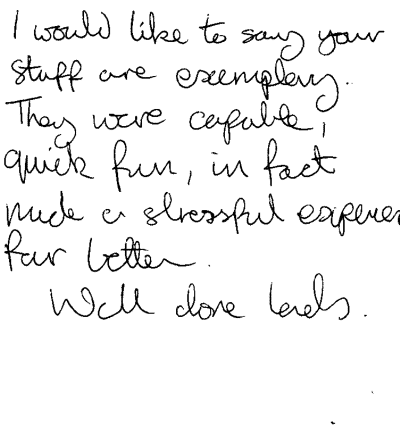 I would like to say your
staff are exemplary.
They were capable,
quick fun, in fact
made a stressful experien
far better.
Well done